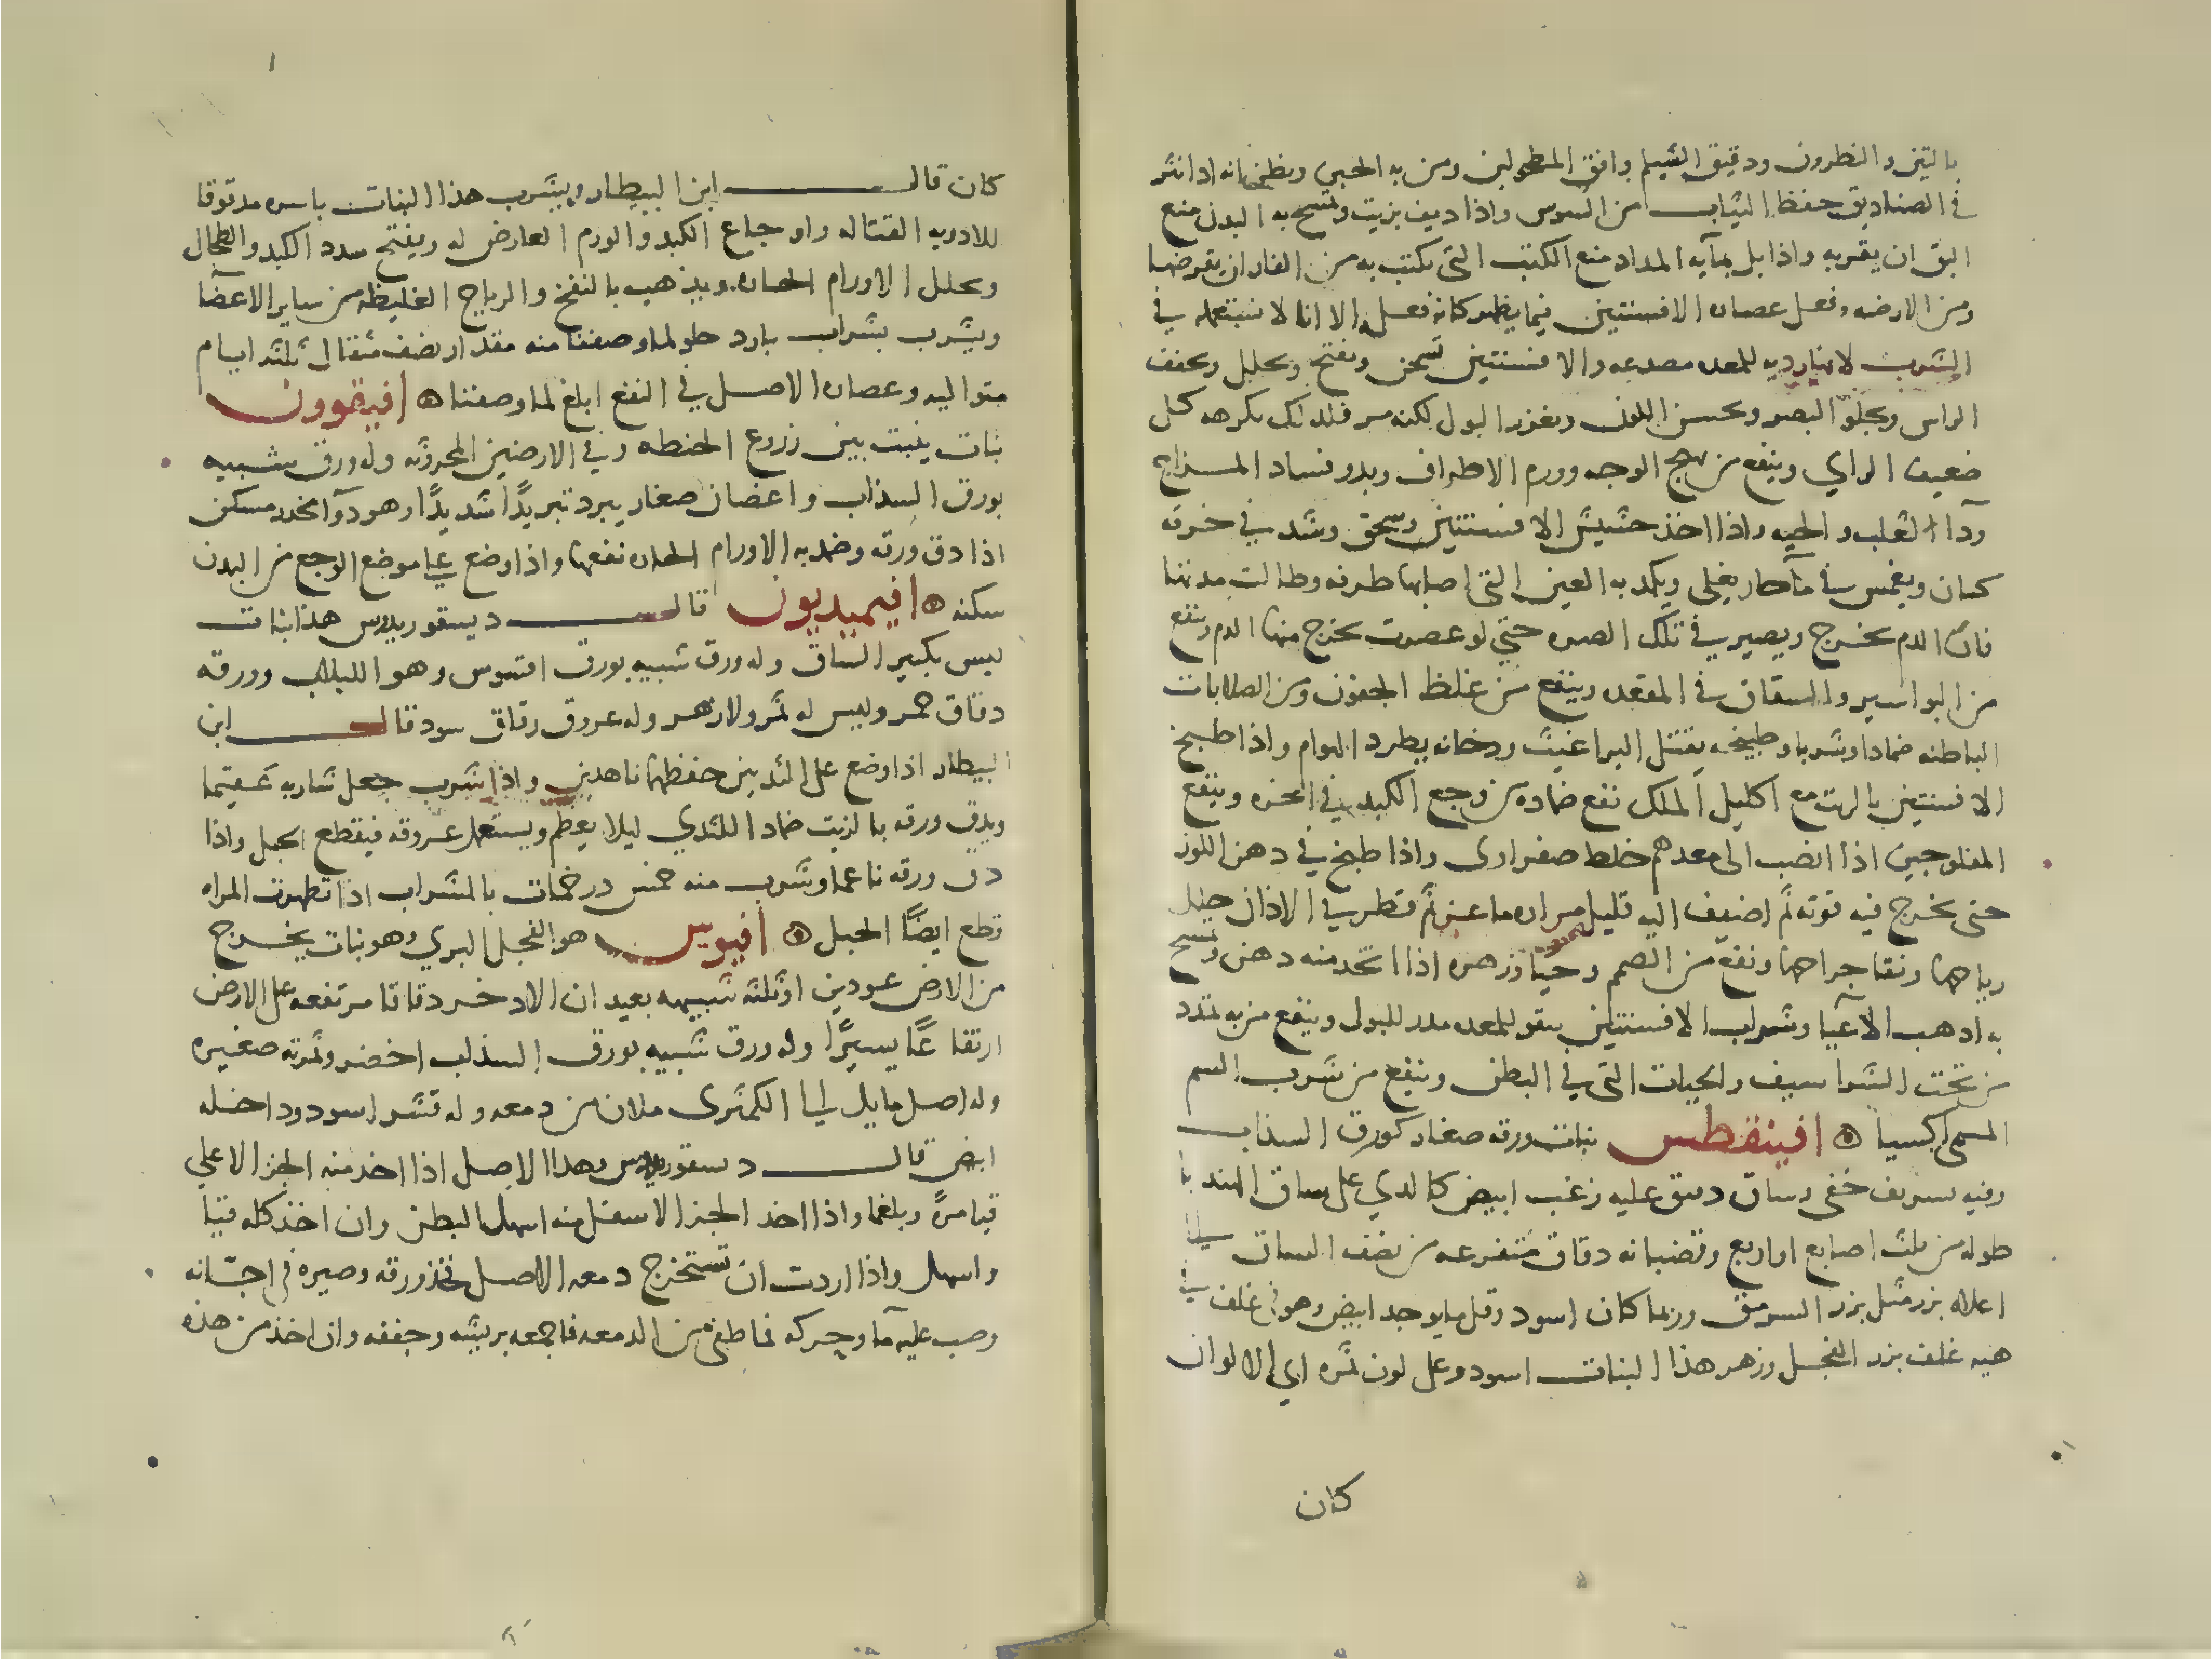 بالتين والنطرون ودقيق الشيلم وافق المطحولين ومن به الحبن ويظن انه اذا نثر
في الصناديق حفظ الثياب من السوس واذا ديف بزيت وتمسح به البدن منع
البق ان يقربه واذا بل بمآيه المداد منع الكتب التي يكتب به من الفار ان يقرضها
ومن الارضه وفعل عصاره الافسنتين فيما يظهر كانه فعله الا انا لا نستعمله في
الشرب لانها رديه للمعده مصدعه والافسنتين يسخن ويفتح ويحلل ويجفف
الراس ويجلو البصر ويحسن اللون ويغزر البول لكنه مر فلذلك يكرهه كل
ضعيف الراي وينفع من تهبج الوجه وورم الاطراف وبدو فساد المزاج
ودآ الثعلب والحيه واذا اخذ حشيش الافسنتين وسحق وشد في خرقه
كتان ويغمس في مآ حار يغلى ويكمد به العين التي اصابها طرفه وطالت مدتها
فان الدم يخرج ويصير في تلك الصره حتي لو عصرت يخرج منها الدم وينفع
من البواسير والشقاق في المقعده وينفع من غلظ الجفون ومن الصلابات
الباطنه ضمادا وشربا وطبيخه يقتل البراغيث ودخانه يطرد الهوام واذا طبخ
الافسنتين بالزيت مع اكليل الملك نفع ضماده من وجع الكبد وينفع
المفلوجين اذا انصب الى معدهم خلط صفراوي واذا طبخ في دهن اللوز
حتى يخرج فيه قوته ثم اضيف اليه قليل مراره ماعز ثم قطر في الاذان حلل
رياحها ونقا جراحها ونفع من الصمم وزهره اذا اتخذ منه دهن وتمسح
به اذهب الاعيا وشراب الافسنتين يقو للمعده مدر للبول وينفع من به تمدد
من تحت الشراسيف والحيات التي في البطن وينفع من شرب السم
المسمى اكسيا ۞ افينقطس نبات ورقه صغار كورق السذاب
وفيه تشريف خفي وساق دقيق عليه زغب ابيض كالذي على ساق الهندبا
طوله من ثلث اصابع او اربع وقضبانه دقاق متفرعه من نصف الساق الى
اعلاه بزر مثل بزر السرمق وربما كان اسود وقل ما يوجد ابيض وهو في غلف في
هيه غلف بزر الفجل وزهر هذا النبات اسود وعلى لون ثمره اي الالوان
كان
كان قال ابن البيطار ويشرب هذا النبات باسره مدقوقا
للادويه القتاله واوجاع الكبد والورم العارض له ويفتح سدد الكبد والطحال
ويحلل الاورام الحاره ويذهب بالنفخ والرياح الغليظه من ساير الاعضآ
ويشرب بشراب بارد حلو لما وصفنا منه مقدار نصف مثقال ثلثه ايام
متواليه وعصاره الاصل في النفع ابلغ لما وصفنا ۞ افيقوون
نبات ينبت بين زروع الحنطه وفي الارضين المحروثه وله ورق شبيه
بورق السذاب واغصان صغار يبرد تبريدًا شديدًا وهو دوآ مخدر مسكن
اذا دق ورقه وضمد به الاورام الحاره نفعها واذا وضع علي موضع الوجع من البدن
سكنه ۞ افيميديون قال ديسقوريدس هذا نبات
ليس بكبير الساق وله ورق شبيه بورق اقسوس وهو اللبلاب وورقه
دقاق حمر وليس له ثمر ولا زهر وله عروق رقاق سود قال ابن
البيطار اذا وضع على الثديين حفظهما ناهدين واذا شرب جعل شاربه عقيما
ويدق ورقه بالزيت ضماد اللثدي ليلا يعظم ويستعمل عروقه فيقطع الحبل واذا
دق ورقه ناعما وشرب منه خمس درخمات بالشراب اذا تطهرت المراه
قطع ايضًا الحبل ۞ افيوس هو الفجل البري وهو نبات يخرج
من الارض عودين او ثلثه شبيهه بعيدان الاذخر دقاقا مرتفعه على الارض
ارتفاعًا يسيرًا وله ورق شبيه بورق السذاب اخضر وثمرته صغيره
وله اصل مايل الي الكمثرى ملان من دمعه وله قشر اسود وداخله
ابيض قال دسقوريدس وهذا الاصل اذا اخذ منه الجز الاعلي
قيا مرةً وبلغما واذا اخذ الجز الاسفل منه اسهل البطن وان اخذ كله قيا
واسهل واذا اردت ان تستخرج دمعه الاصل فخذ ورقه وصيره في اجّانه
وصب عليه مآ وحركه فما طفى من الدمعه فاجمعه بريشه وجففه وان اخذ من هذه